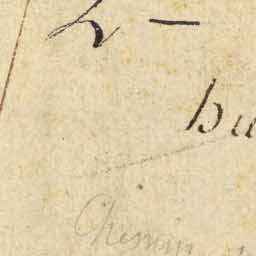 2 –
bu
Chemin